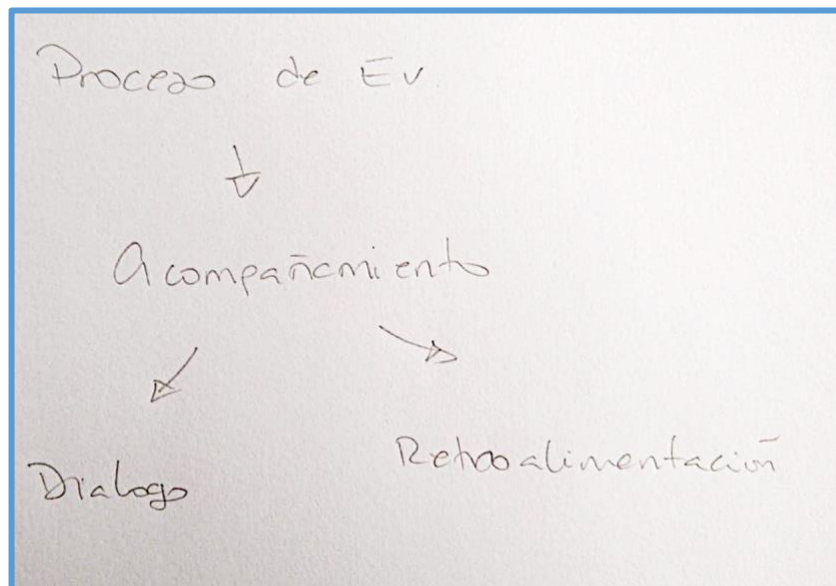 Proceso de Ev.
Acompañamiento
Dialogo
Retroalimentación